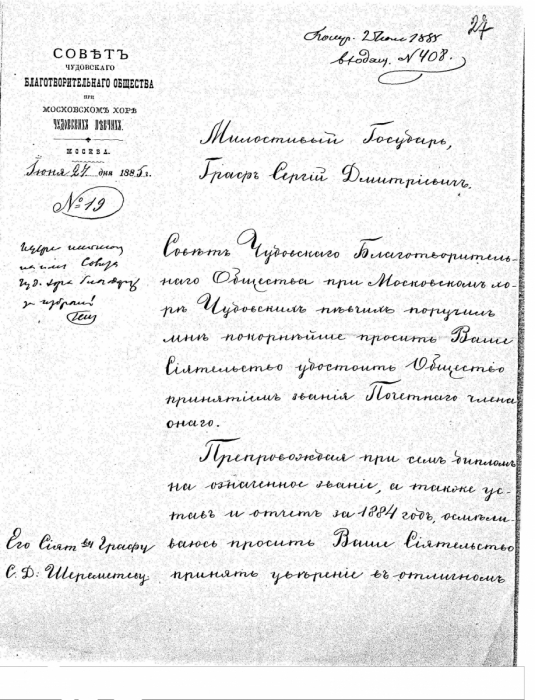 27
2 Июля 1885
входящ. № 408.
СОВѢТЪ
ЧУДОВСКАГО
БЛАГОТВОРИТЕЛЬНАГО ОБЩЕСТВА
ПРИ
МОСКОВСКОМЪ ХОРѢ
ЧУДОВСКИХЪ ПѢВЧИХЪ.
МОСКВА.
Іюня 27 дня 1885 г.
№ 19
Милостивый Государь,
Графъ Сергій Дмитріевичъ.
на имя Совѣта
за избраніе
Совѣтъ Чудовскаго Благотворитель-
наго Общества при Московскомъ хо-
рѣ Чудовскихъ пѣвчихъ поручилъ
мнѣ покорнѣйше просить Ваше
Сіятельство удостоить Общество
принятіемъ званія Почетнаго члена
онаго.
Препровождая при семъ дипломъ
на означенное званіе, а также ус-
тавъ и отчетъ за 1884 годъ, осмѣли-
ваюсь просить Ваше Сіятельство
принять увѣреніе въ отличномъ
Его Сіят ву Графу
С. Д. Шереметеву